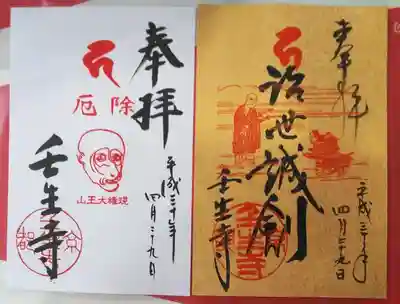 奉拝
平成三十年
四月二十九日
厄除
山王大権現
壬生寺
京都
奉拝
平成三十年
四月二十九日
治世誠剣
壬生寺